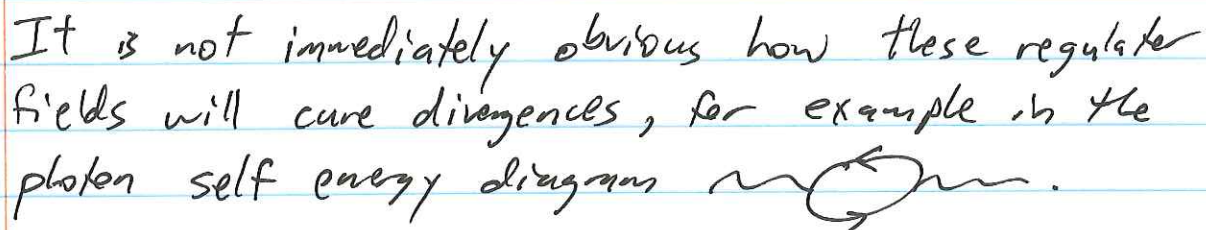 It is not immediately obvious how these regulator
fields will cure divergences, for example in the
photon self energy diagram .